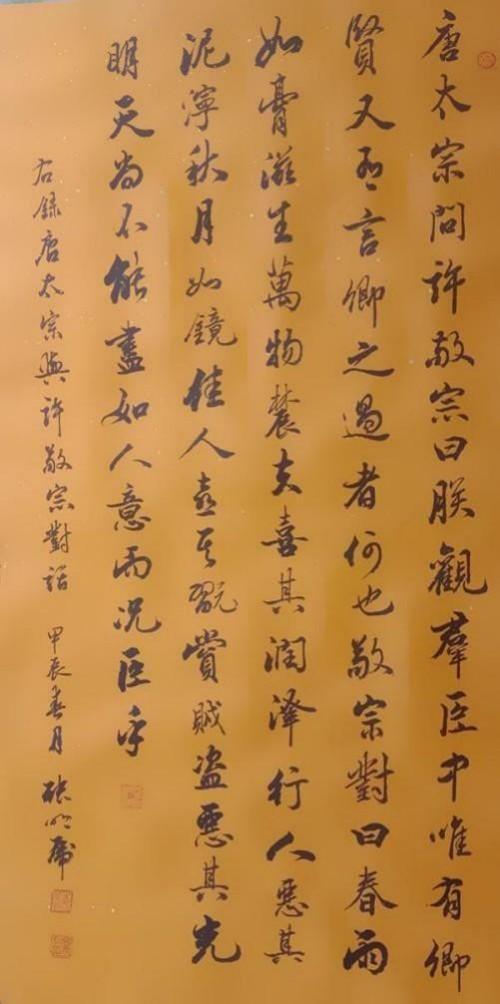 唐太宗問許敬宗曰朕觀羣臣中唯有卿
賢又有言卿之過者何也敬宗對曰春雨
如膏滋生萬物農夫喜其潤澤行人惡其
泥濘秋月如鏡佳人喜其翫賞賊盜惡其光
明天尚不能盡如人意而况臣乎
右錄唐太宗與許敬宗對話 甲辰春月